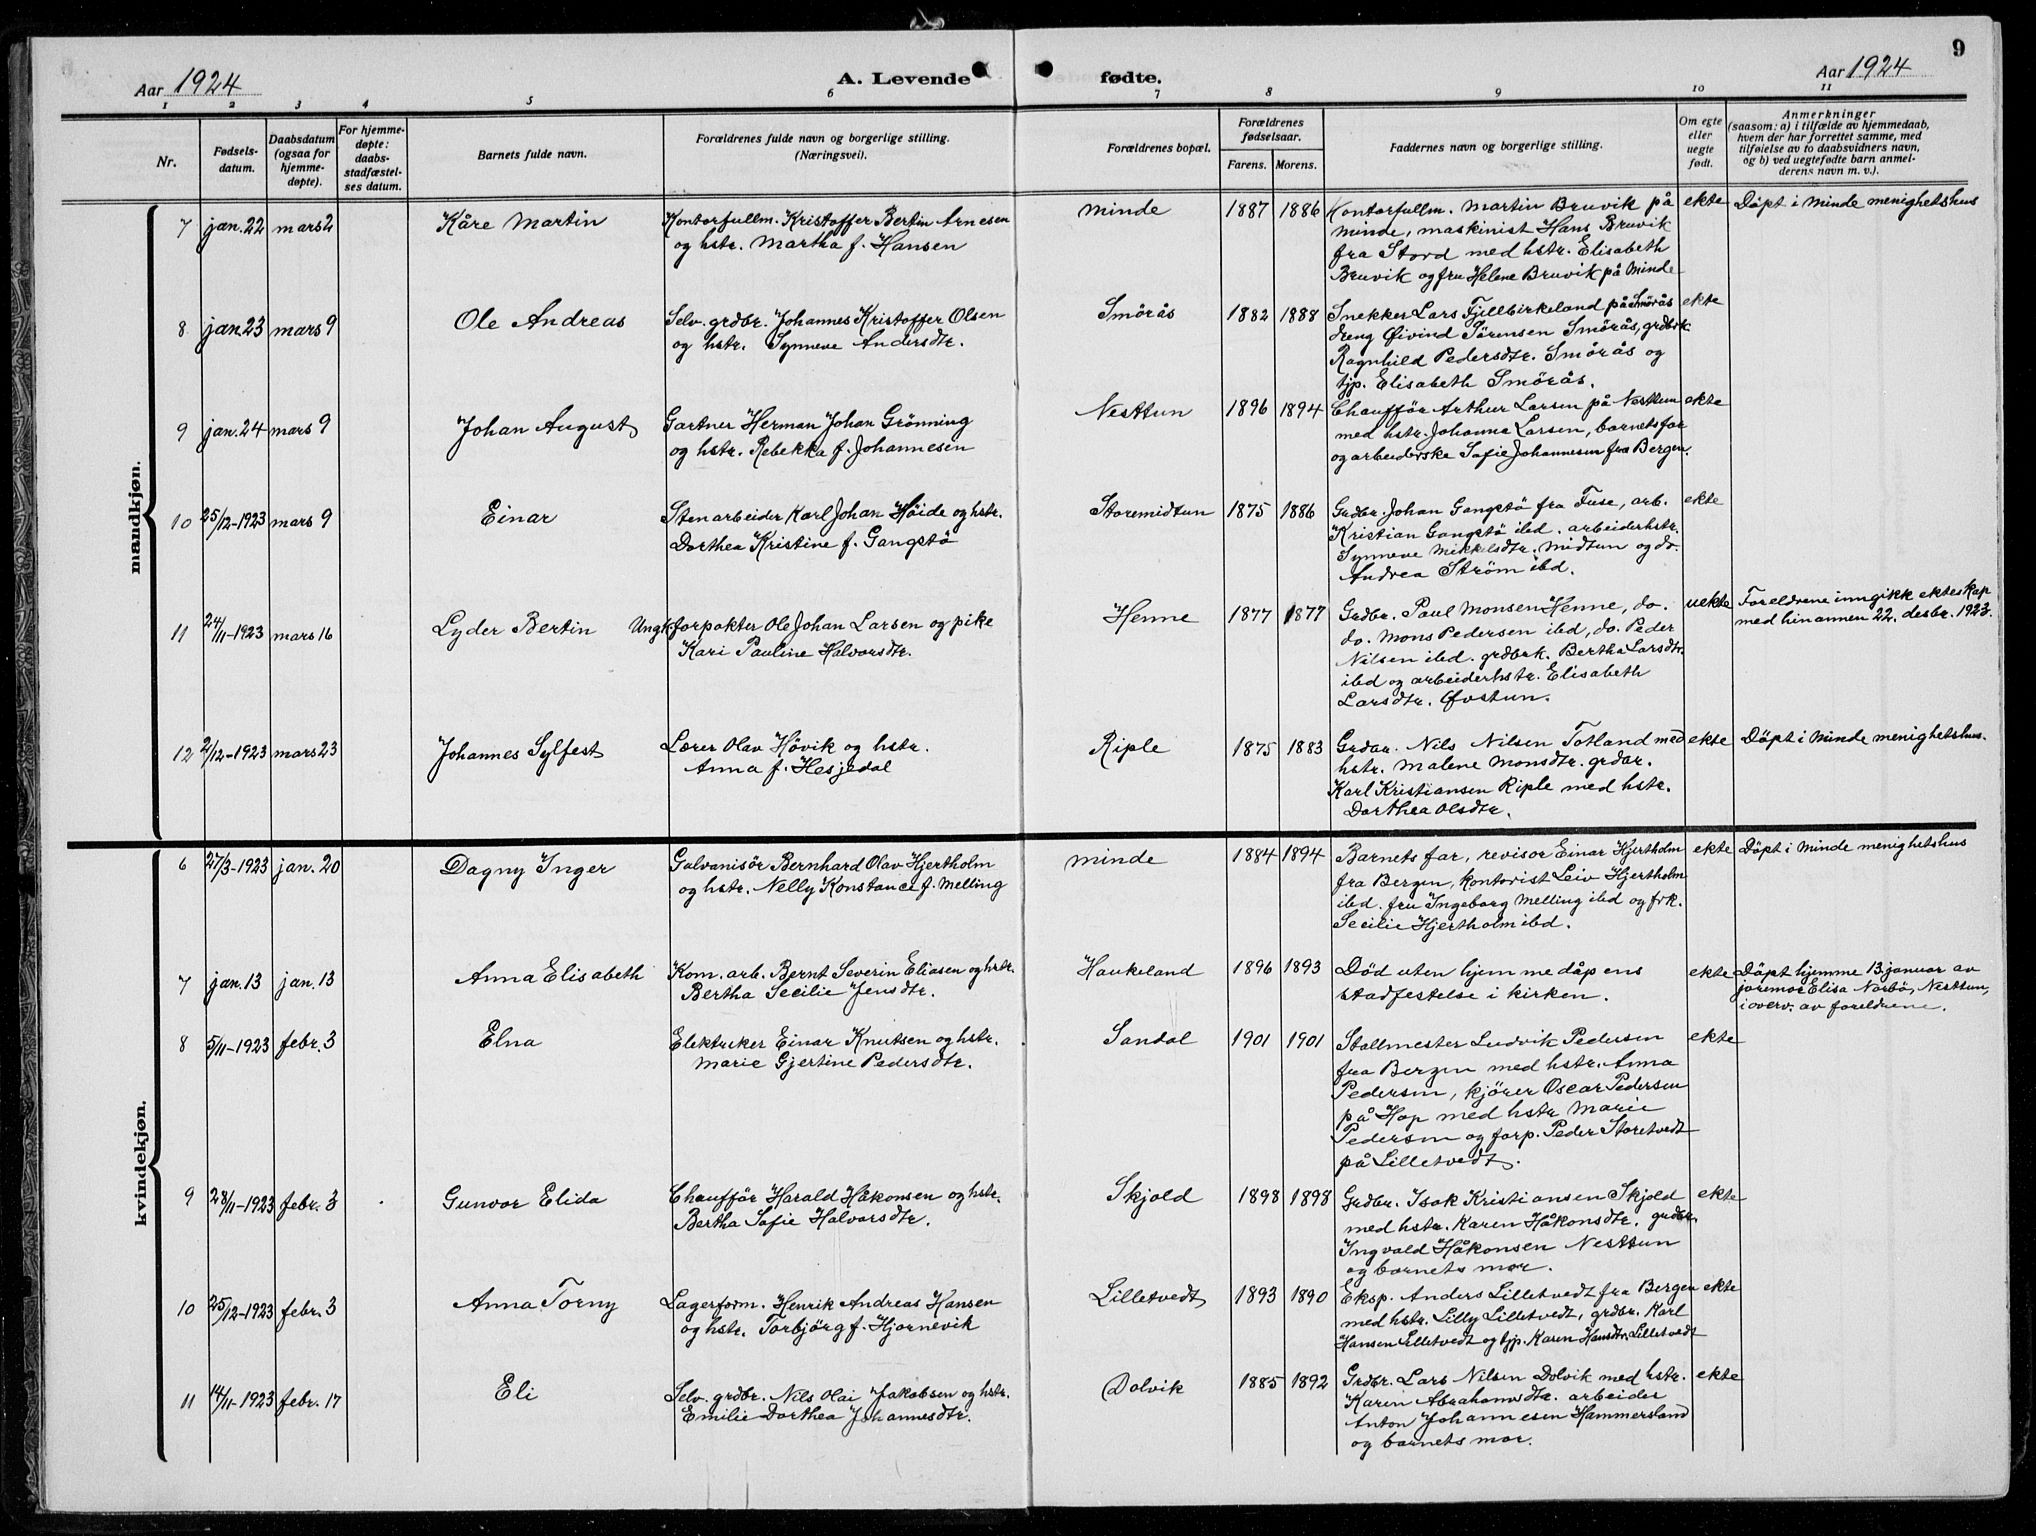 9
Aar 1924
A. Levende
fødte.
Aar 1924
1 2 3 4 5 6 7 8 9 10 11
Nr.
Fødsels-
datum.
Daabsdatum
(ogsaa for
hjemme-
døpte).
For hjemme-
døpte:
daabs-
stadfæstel-
ses datum.
Barnets fulde navn.
Forældrenes fulde navn og borgerlige stilling.
(Næringsvei).
Forældrenes bopæl.
Forældrenes
fødselsaar.
Farens. Morens.
Faddernes navn og borgerlige stilling.
Om egte
eller
uegte
født.
Anmerkninger
(saasom: a) i tilfælde av hjemmedaab,
hvem der har forrettet samme, med
tilføielse av to daabsvidners navn,
og b) ved uegtefødte barn anmel-
derens navn m. v.).
mandkjøn.
7 jan. 22 mars 2 Kåre Martin
Kontorfullm. Kristoffer Bertin Arnesen
og hstr. Martha f. Hansen
Minde 1887 1886
Kontorfullm. Martin Bruvik på
Minde, maskinist Hans Bruvik
fra Stord med hstr. Elisabeth
Bruvik og fru Helene Bruvik på Minde
ekte Döpt i Minde menighetshus
8 jan. 23 mars 9 Ole Andreas
Selv. grdbr. Johannes Kristoffer Olsen
og hstr. Synneve Andersdtr.
Smörås 1882 1888
Snekker Lars Fjellbirkeland på Smörås
dreng Øivind Sørensen Smörås, grdbrk
Ragnhild Pedersdtr. Smörås og
tjp. Elisabeth Smörås.
ekte
9 jan. 24 mars 9 Johan August
Gartner Herman Johan Grönning
og hstr. Rebekka f. Johannesen
Nesttun 1896 1894
Chaufför Arthur Larsen på Nesttun
med hstr. Johanna Larsen, barnets far
og arbeiderske Sofie Johannesen fra Bergen.
ekte
10 25/12-1923 mars 9 Einar
Stenarbeider Karl Johan Höide og hstr.
Dorthea Kristine f. Gangstö
Storemidtun 1875 1886
Grdbr. Johan Gangstö fra Fuse, arb.
Kristian Gangstö ibd. arbeiderhstr.
Synneve Mikkelsdtr. Midtun og do.
Andrea Strøm ibd.
ekte
11 24/11-1923 mars 16 Lyder Bertin
Ungk. forpakter Ole Johan Larsen og pike
Kari Pauline Halvorsdtr.
Henne 1877 1877
Grdbr. Paul Monsen Henne, do.
do. Mons Pedersen ibd, do. Peder
Nilsen ibd. grdbrk. Bertha Larsdtr.
ibd og arbeiderhstr. Elisabeth
Larsdtr. Øvstun.
uekte Foreldrene inngikk ekteskap
med hinannen 22. desbr. 1923.
12 2/12-1923 mars 23 Johannes Sylfest
Lærer Olav Hövik og hstr.
Anna f. Hesjedal
Riple 1875 1883
Grdar. Nils Nilsen Totland med
hstr. Malene Monsdtr. grdar.
Karl Kristiansen Riple med hstr.
Dorthea Olsdtr.
ekte Döpt i Minde menighetshus.
kvindekjøn.
6 27/3-1923 jan. 20 Dagny Inger
Galvanisör Bernhard Olav Hjertholm
og hstr. Nelly Konstance f. Melling
Minde 1884 1894
Barnets far, revisor Einar Hjertholm
fra Bergen, kontorist Leiv Hjertholm
ibd. fru Ingeborg Melling ibd og frk.
Secilie Hjertholm ibd.
ekte Döpt i Minde menighetshus
7 jan. 13 jan. 13 Anna Elisabeth
Kom. arb. Bernt Severin Eliasen og hstr.
Bertha Secilie Jensdtr.
Haukeland 1896 1893
Död uten hjemmedåpens
stadfestelse i kirken.
ekte Döpt hjemme 13. januar av
joremor Elisa Narbö, Nesttun,
i overv. av foreldrene.
8 5/11-1923 febr. 3 Elna
Elektriker Einar Knutsen og hstr.
Marie Gjertine Pedersdtr.
Sandal 1901 1901
Stallmester Ludvik Pedersen
fra Bergen med hstr. Anna
Pedersen, kjörer Oscar Pedersen
på Hop med hstr Marie
Pedersen og forp. Peder Storetvedt
på Lilletvedt.
ekte
9 28/11-1923 febr. 3 Gunvor Elida
Chaufför Harald Håkonsen og hstr.
Bertha Sofie Halvorsdtr.
Skjold 1898 1898
Grdbr. Isak Kristiansen Skjold
med hstr. Karen Håkonsdtr. grdbr.
Ingvald Håkonsen Nesttun
og barnets mor.
ekte
10 25/12-1923 febr. 3 Anna Torny
Lagerform. Henrik Andreas Hansen
og hstr. Torbjörg f. Hjornevik
Lilletvedt 1893 1890
Eksp. Anders Lilletvedt fra Bergen
med hstr. Lilly Lilletvedt, grdbr. Karl
Hansen Lilletvedt og tjp. Karen Hansdtr. Lilletvedt
ekte
11 14/11-1923 febr. 17 Eli
Selv. grdbr. Nils Olai Jakobsen og hstr.
Emilie Dorthea Johannesdtr.
Dolvik 1885 1892
Grdbr. Lars Nilsen Dolvik med hstr.
Karin Abrahamsdtr. arbeider
Anton Johannesen Hammersland
og barnets mor.
ekte